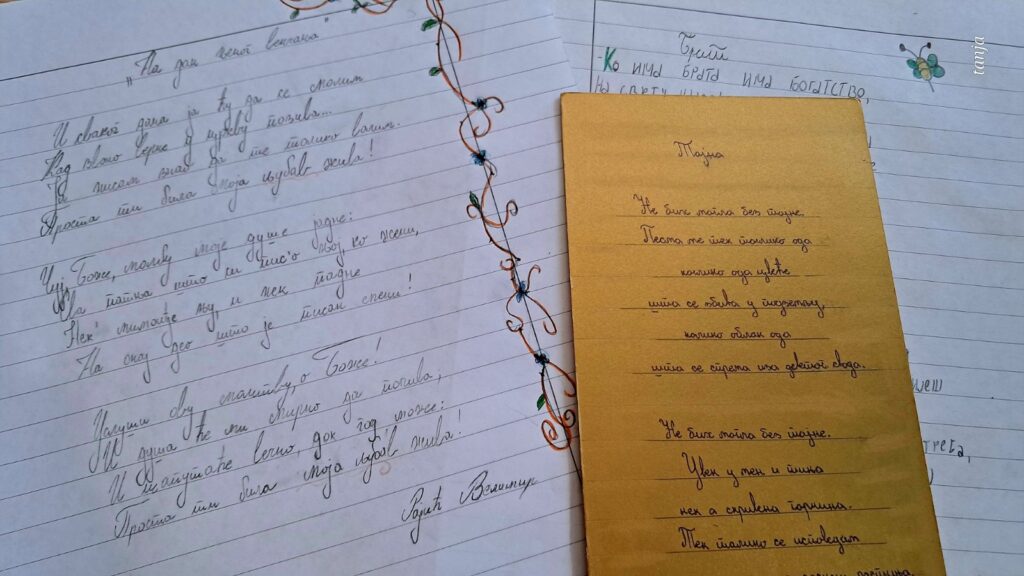 „На дан њеног венчања"
И свакога дана ја ћу да се молим
Кад звоно верне у цркву позива...
Ја нисам знао да те толико волим.
Проста ти била моја љубав жива!
Чуј, Боже, молбу моје душе јадне:
Сва патња што си пис'о њој ко жени,
Нек' мимоиђе њу, и нек падне
На онај део што је писан мени!
Услиши ову молитву, о Боже!
И душа ће ми мирно да почива,
И шапутаће вечно, док год може:
Проста ти била моја љубав жива!
Рајић Велимир
Брат
Ко има брата има богатство,
На свету
Тајна
Не бих могла без тајне.
Песма ме тек толико ода
колико ода цвеће
шта се збива у подземљу,
колико облак ода
шта се спрема иза деветог свода.
Не бих могла без тајне.
Увек у мени
нека скривена горчина.
Тек толико се исповедам
tanja